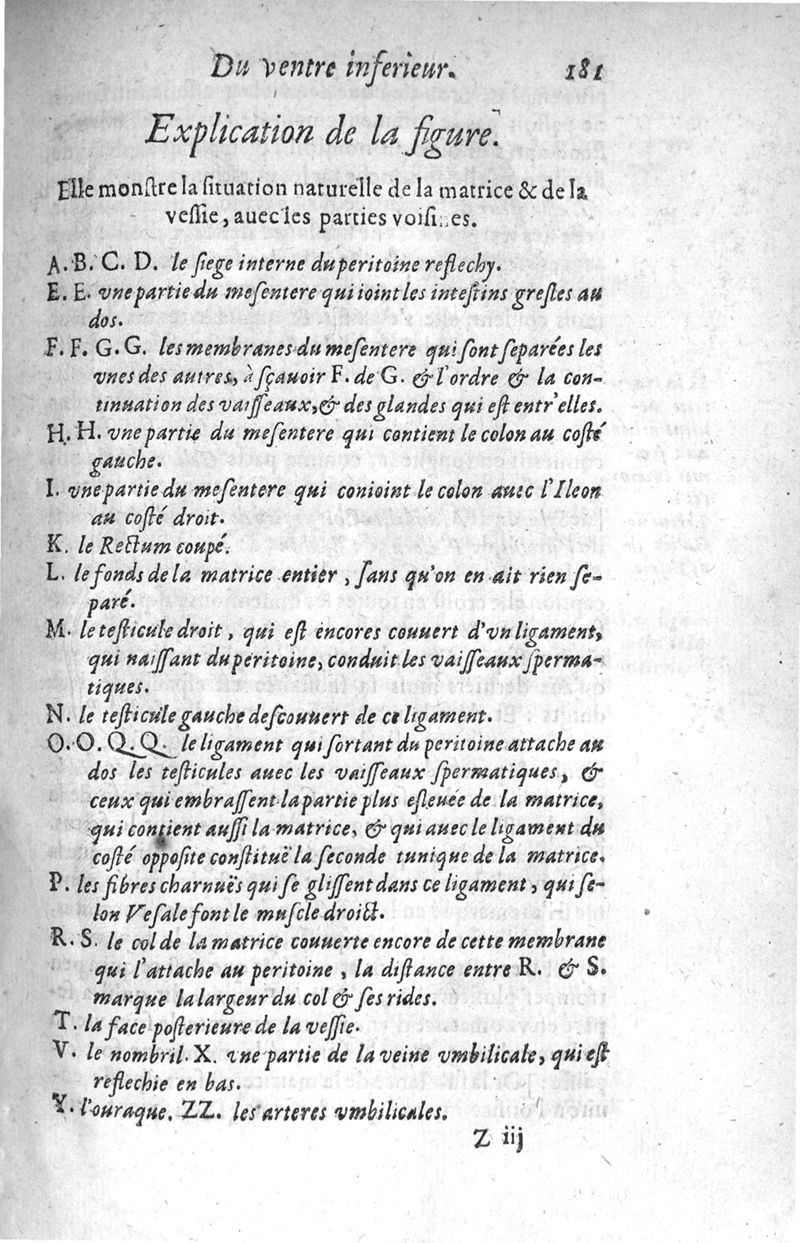 Du ventre inferieur. 181
Explication de la figure.
Elle monſtre la ſituation naturelle de la matrice & de la
veſſie, auec les parties voiſines.
A. B. C. D. le ſiege interne du peritoine reflechy.
E. E. vne partie du meſentere qui ioint les inteſtins greſles au
dos.
F. F. G. G. les membranes du meſentere qui ſont ſeparées les
vnes des autres, à ſçauoir F. de G. & l'ordre & la con-
tinuation des vaiſſeaux, & des glandes qui eſt entr'elles.
H. H. vne partie du meſentere qui contient le colon au coſté
gauche.
I. vne partie du meſentere qui conioint le colon auec l'Ileon
au coſté droit.
K. le Rectum coupé.
L. le fonds de la matrice entier, ſans qu'on en ait rien ſe-
paré.
M. le teſticule droit, qui eſt encores couuert d'vn ligament,
qui naiſſant du peritoine, conduit les vaiſſeaux ſperma-
tiques.
N. le teſticule gauche deſcouuert de ce ligament.
O. O. Q. Q. le ligament qui ſortant du peritoine attache au
dos les teſticules auec les vaiſſeaux ſpermatiques, &
ceux qui embraſſent la partie plus eſleuée de la matrice,
qui contient auſſi la matrice, & qui auec le ligament du
coſté oppoſite conſtituë la ſeconde tunique de la matrice.
P. les fibres charnuës qui ſe gliſſent dans ce ligament, qui ſe-
lon Veſale font le muſcle droict.
R. S. le col de la matrice couuerte encore de cette membrane
qui l'attache au peritoine, la diſtance entre R. & S.
marque la largeur du col & ſes rides.
T. la face poſterieure de la veſſie.
V. le nombril. X. vne partie de la veine vmbilicale, qui eſt
reflechie en bas.
Y. l'ouraque. ZZ. les arteres vmbilicales.
Z iij